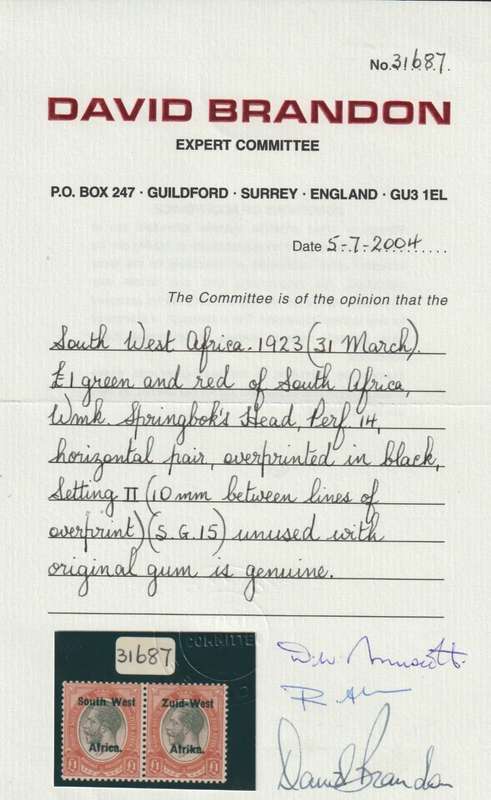 No. 31687.
DAVID BRANDON
EXPERT COMMITTEE
P.O. BOX 247 · GUILDFORD · SURREY · ENGLAND · GU3 1EL
Date 5-7-2004
The Committee is of the opinion that the
South West Africa. 1923 (31 March).
£1 green and red of South Africa,
Wmk. Springbok's Head, Perf 14,
horizontal pair, overprinted in black,
Setting II (10mm between lines of
overprint) (S.G.15) unused with
original gum is genuine.
COMMITTEE
31687
South West
Africa.
£1 £1
Zuid-West
Afrika.
£1 £1
David Brandon